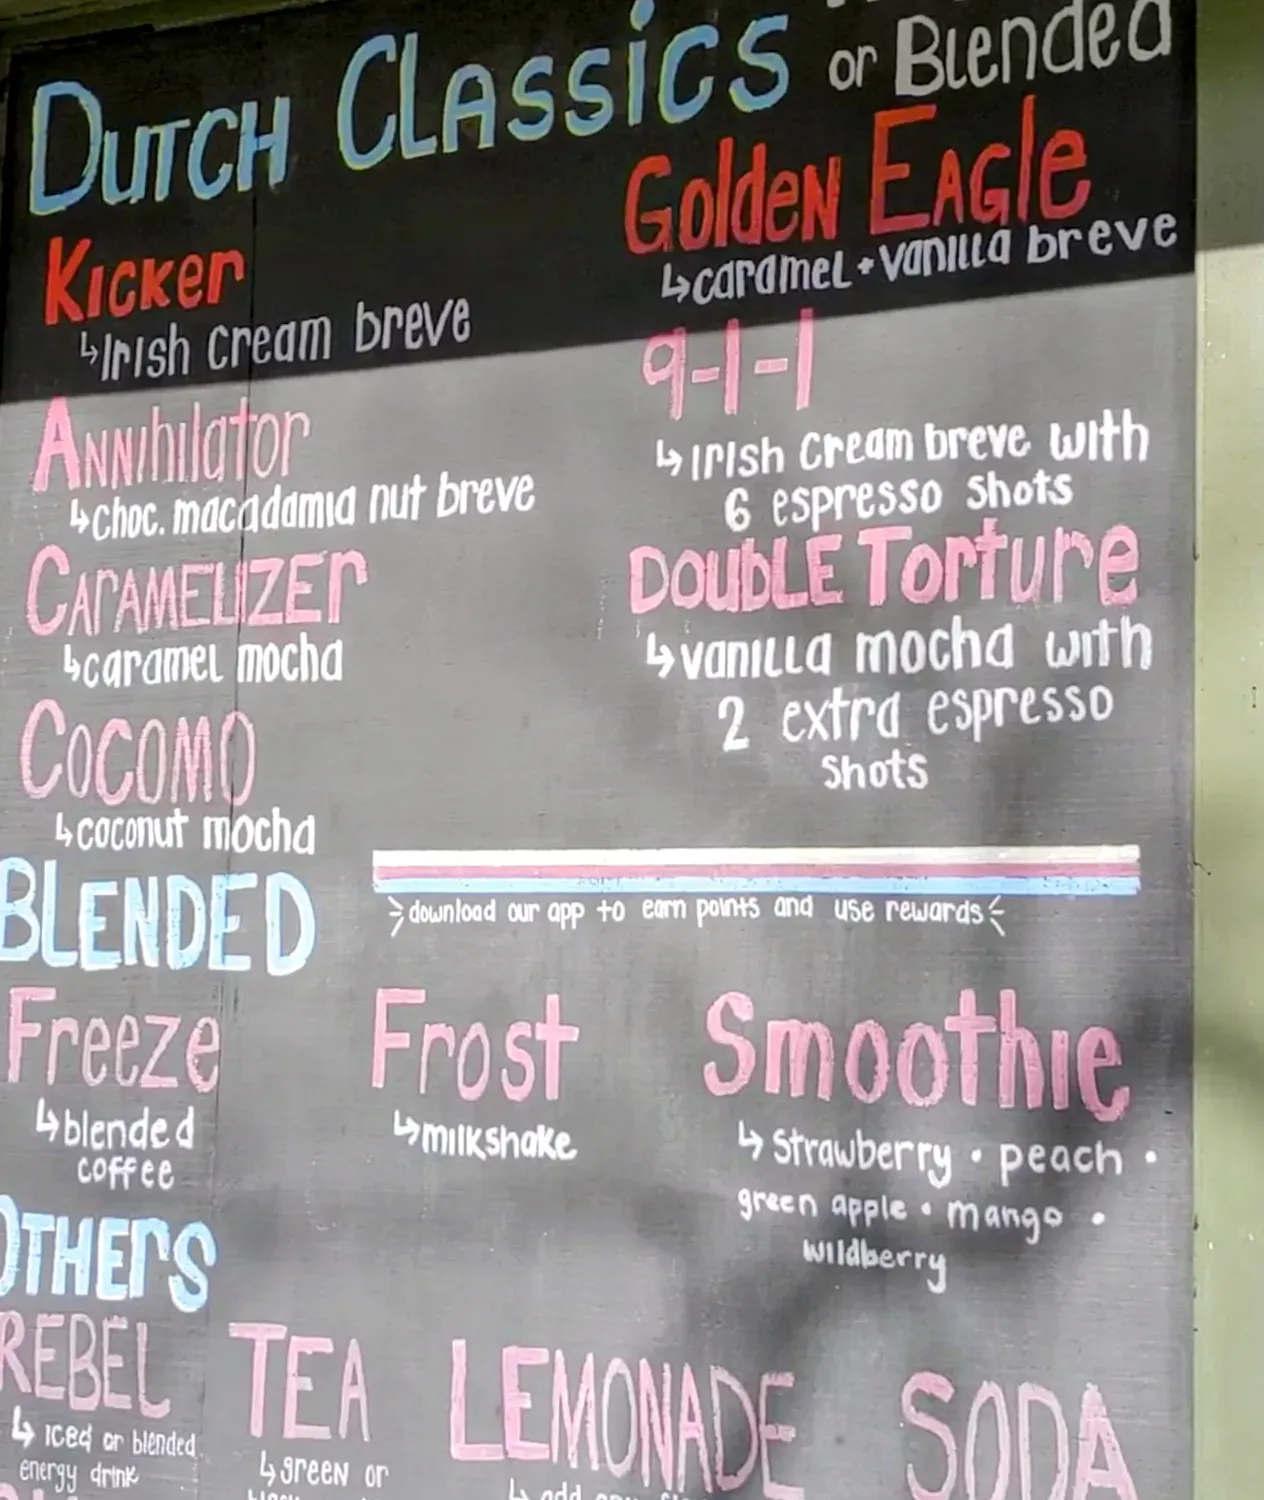 Dutch Classics
or Blended
Kicker
↳Irish cream breve
Annihilator
↳choc. macadamia nut breve
Caramelizer
↳caramel mocha
Cocomo
↳coconut mocha
Golden Eagle
↳caramel + vanilla breve
9-1-1
↳Irish cream breve with
6 espresso shots
Double Torture
↳vanilla mocha with
2 extra espresso
shots
download our app to earn points and use rewards
BLENDED
Freeze
↳blended
coffee
Frost
↳milkshake
Smoothie
↳strawberry • peach •
green apple • mango •
wildberry
OTHERS
REBEL
↳ Iced or blended
energy drink
TEA
↳green or
LEMONADE
↳ add any
SODA